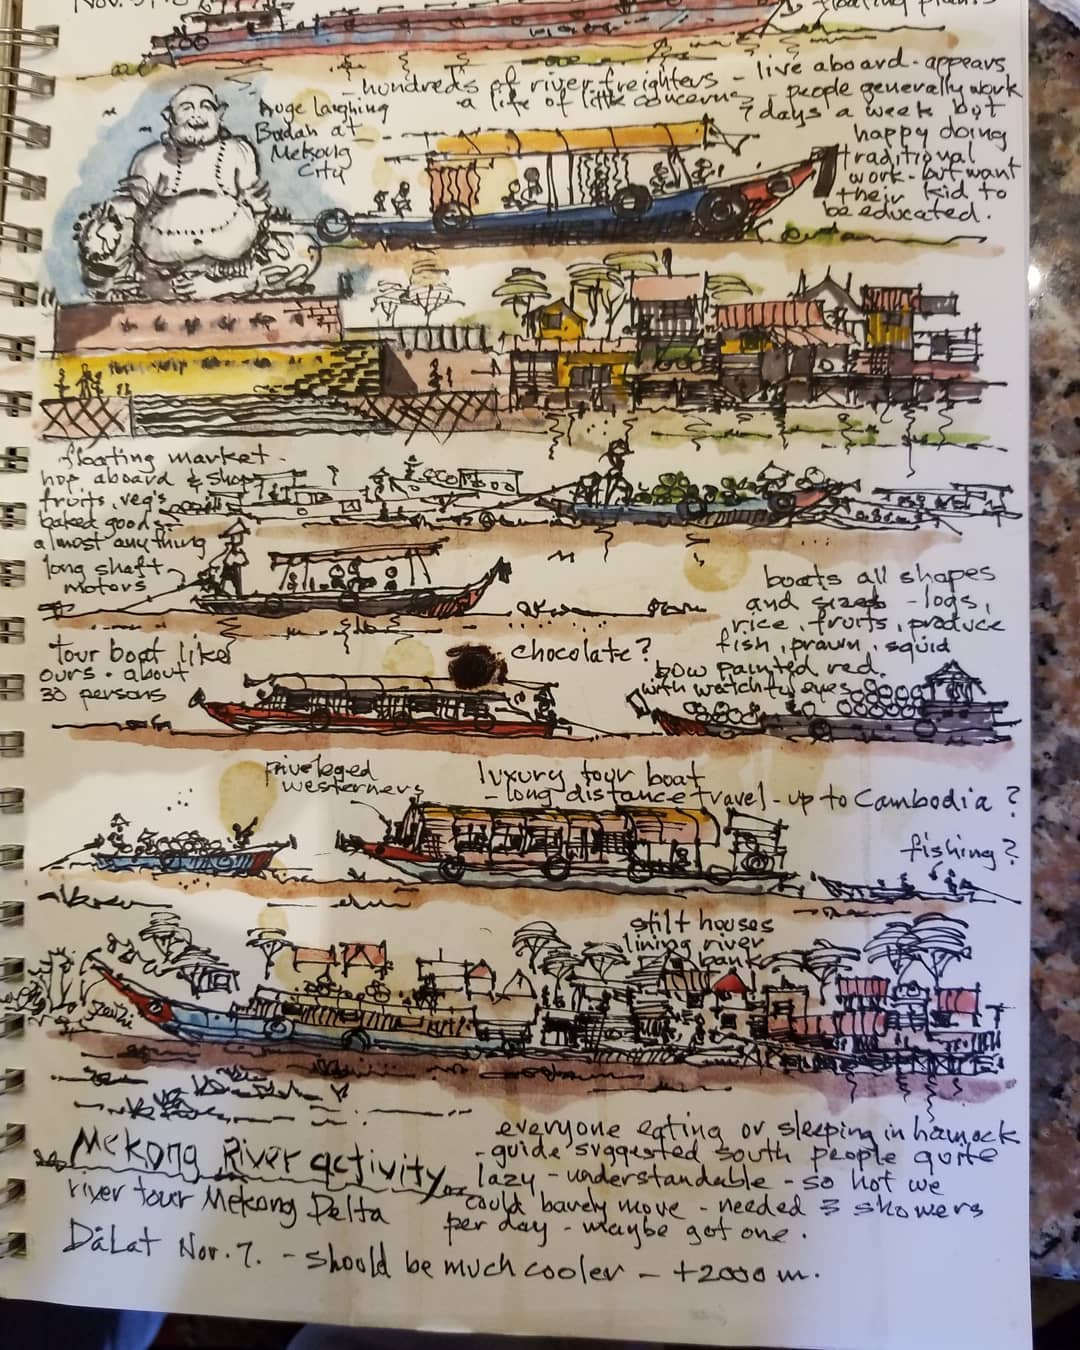 Nov. 5,
floating plants
- hundreds of river freighters - live aboard - appears
a life of little concerns - people generally work
7 days a week but
happy doing
traditional
work - but want
their kid to
be educated.
Huge laughing
Budah at
Mekong
City
floating market -
hop aboard & shop
fruits, veg's
baked goods -
almost anything
long shaft
motors
boats all shapes
and sizes - logs,
rice, fruits, produce
fish, prawn, squid
bow painted red.
with watchful eyes
tour boat like
ours - about
30 persons
chocolate?
priveleged
westerners
luxury tour boat
- long distance travel - up to Cambodia?
fishing?
stilt houses
lining river
bank
Mekong River activity
river tour Mekong Delta
everyone eating or sleeping in hamock
- guide suggested south people quite
lazy - understandable - so hot we
could barely move - needed 3 showers
per day - maybe got one.
DaLat Nov. 7. - should be much cooler - +2000 m.